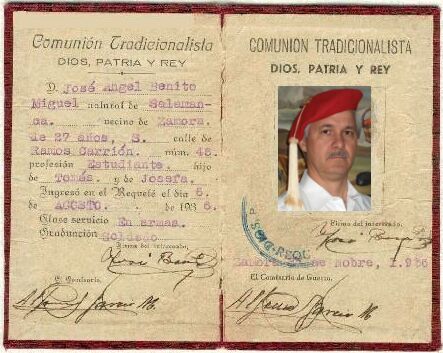 Comunión Tradicionalista
DIOS, PATRIA Y REY
D. José Angel Benito
Miguel natural de Salaman-
ca. vecino de Zamora.
de 27 años, S. calle de
Ramos Carrión. núm. 48.
profesión Estudiante. hijo
de Tomás. y de Josefa.
Ingresó en el Requeté el día 6.
de AGOSTO. de 1936.
Clase servicio En armas.
Graduación Soldado
Firma del interesado,
José Benito
El Comisario,
COMUNION TRADICIONALISTA
DIOS, PATRIA Y REY
Firma del interesado,
José
1.936
El Comisario de Guerra,